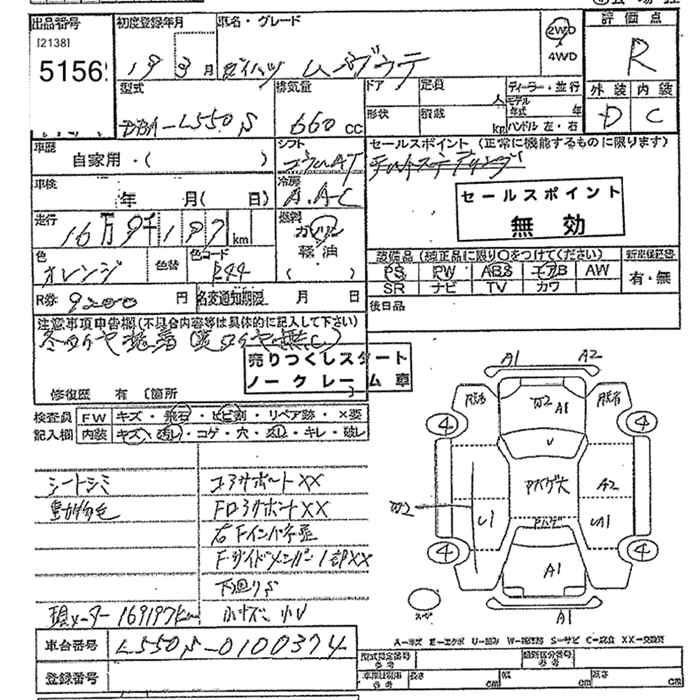 出品番号
初度登録年月
車名・グレード
2WD
4WD
評価点
[2138]
5156
19 3月
ダイハツ ムーヴラテ
R
型式
排気量
ドア
定員
人
ディーラー・並行
モデル
年式 年
外装 内装
DBA-L550S
660 cc
形状
積載
kg
ハンドル 左・右
D C
車歴
自家用・( )
シフト
コラムAT
セールスポイント (正常に機能するものに限ります)
車検
年 月( 日)
冷房
A.A-C
セールスポイント
無効
走行
16万9千197 km
燃料
ガソリン
軽油
( )
色
オレンジ
色替
色コード
R44
装備品 (純正品に限り○をつけてください)
新車保証書
PS PW ABS エアB AW
有・無
SR ナビ TV カワ
R券
9200 円
名変通知期限 月 日
後日品
注意事項申告欄 (不具合内容等は具体的に記入して下さい)
冬タイヤ装着(夏タイヤ無し)
売りつくしスタート
ノークレーム車
修復歴 有 〔箇所
検査員
記入欄
FW キズ・飛石・ヒビ割・リペア跡・×要
内装 キズ・汚れ・コゲ・穴・スレ・キレ・破レ
シートシミ
コアサポートXX
動物毛
右Fインパネ
下回りS
現メーター 169197km
小キズ 小U
車台番号
L550S-0100374
登録番号
A1 A2
A1
U
4 4
A2
U1
4 4
A1
A1
スペア
A-キズ E-エクボ U-凹み W-補修跡 S-サビ C-腐食 XX-交換済
型式指定番号
参考
類別区分番号
参考
長さ cm
幅 cm
高さ cm